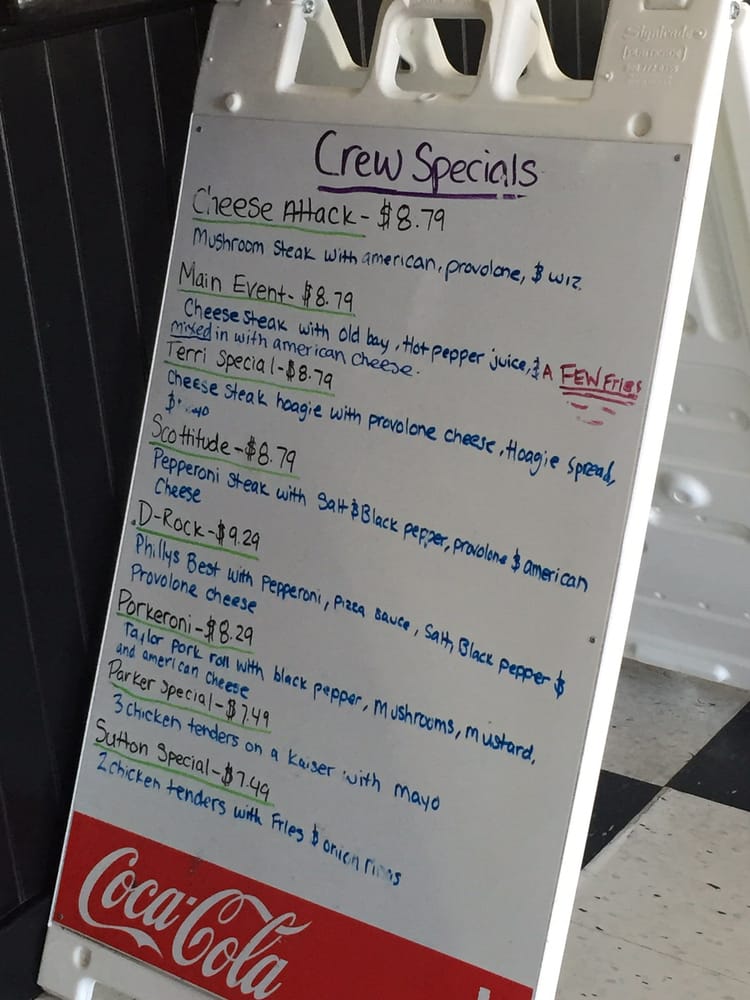 Crew Specials
Cheese Attack - $8.79
Mushroom steak with american, provolone, $ wiz.
Main Event - $8.79
Cheese steak with old bay, Hot pepper juice, $ A FEW Fries
mixed in with american cheese.
Terri Special - $8.79
Cheese steak hoagie with provolone cheese, Hoagie spread,
$
Scottitude - $8.79
Pepperoni steak with Salt $ Black pepper, provolone $ american
Cheese
D-Rock - $9.29
Phillys Best with Pepperoni, Pizza sauce, Salt, Black pepper $
Provolone cheese
Porkeroni - $8.29
Taylor pork roll with black pepper, Mushrooms, mustard,
and american cheese
Parker Special - $7.49
3 chicken tenders on a Kaiser with mayo
Sutton Special - $7.49
2 chicken tenders with Fries $ onion rings
Coca-Cola